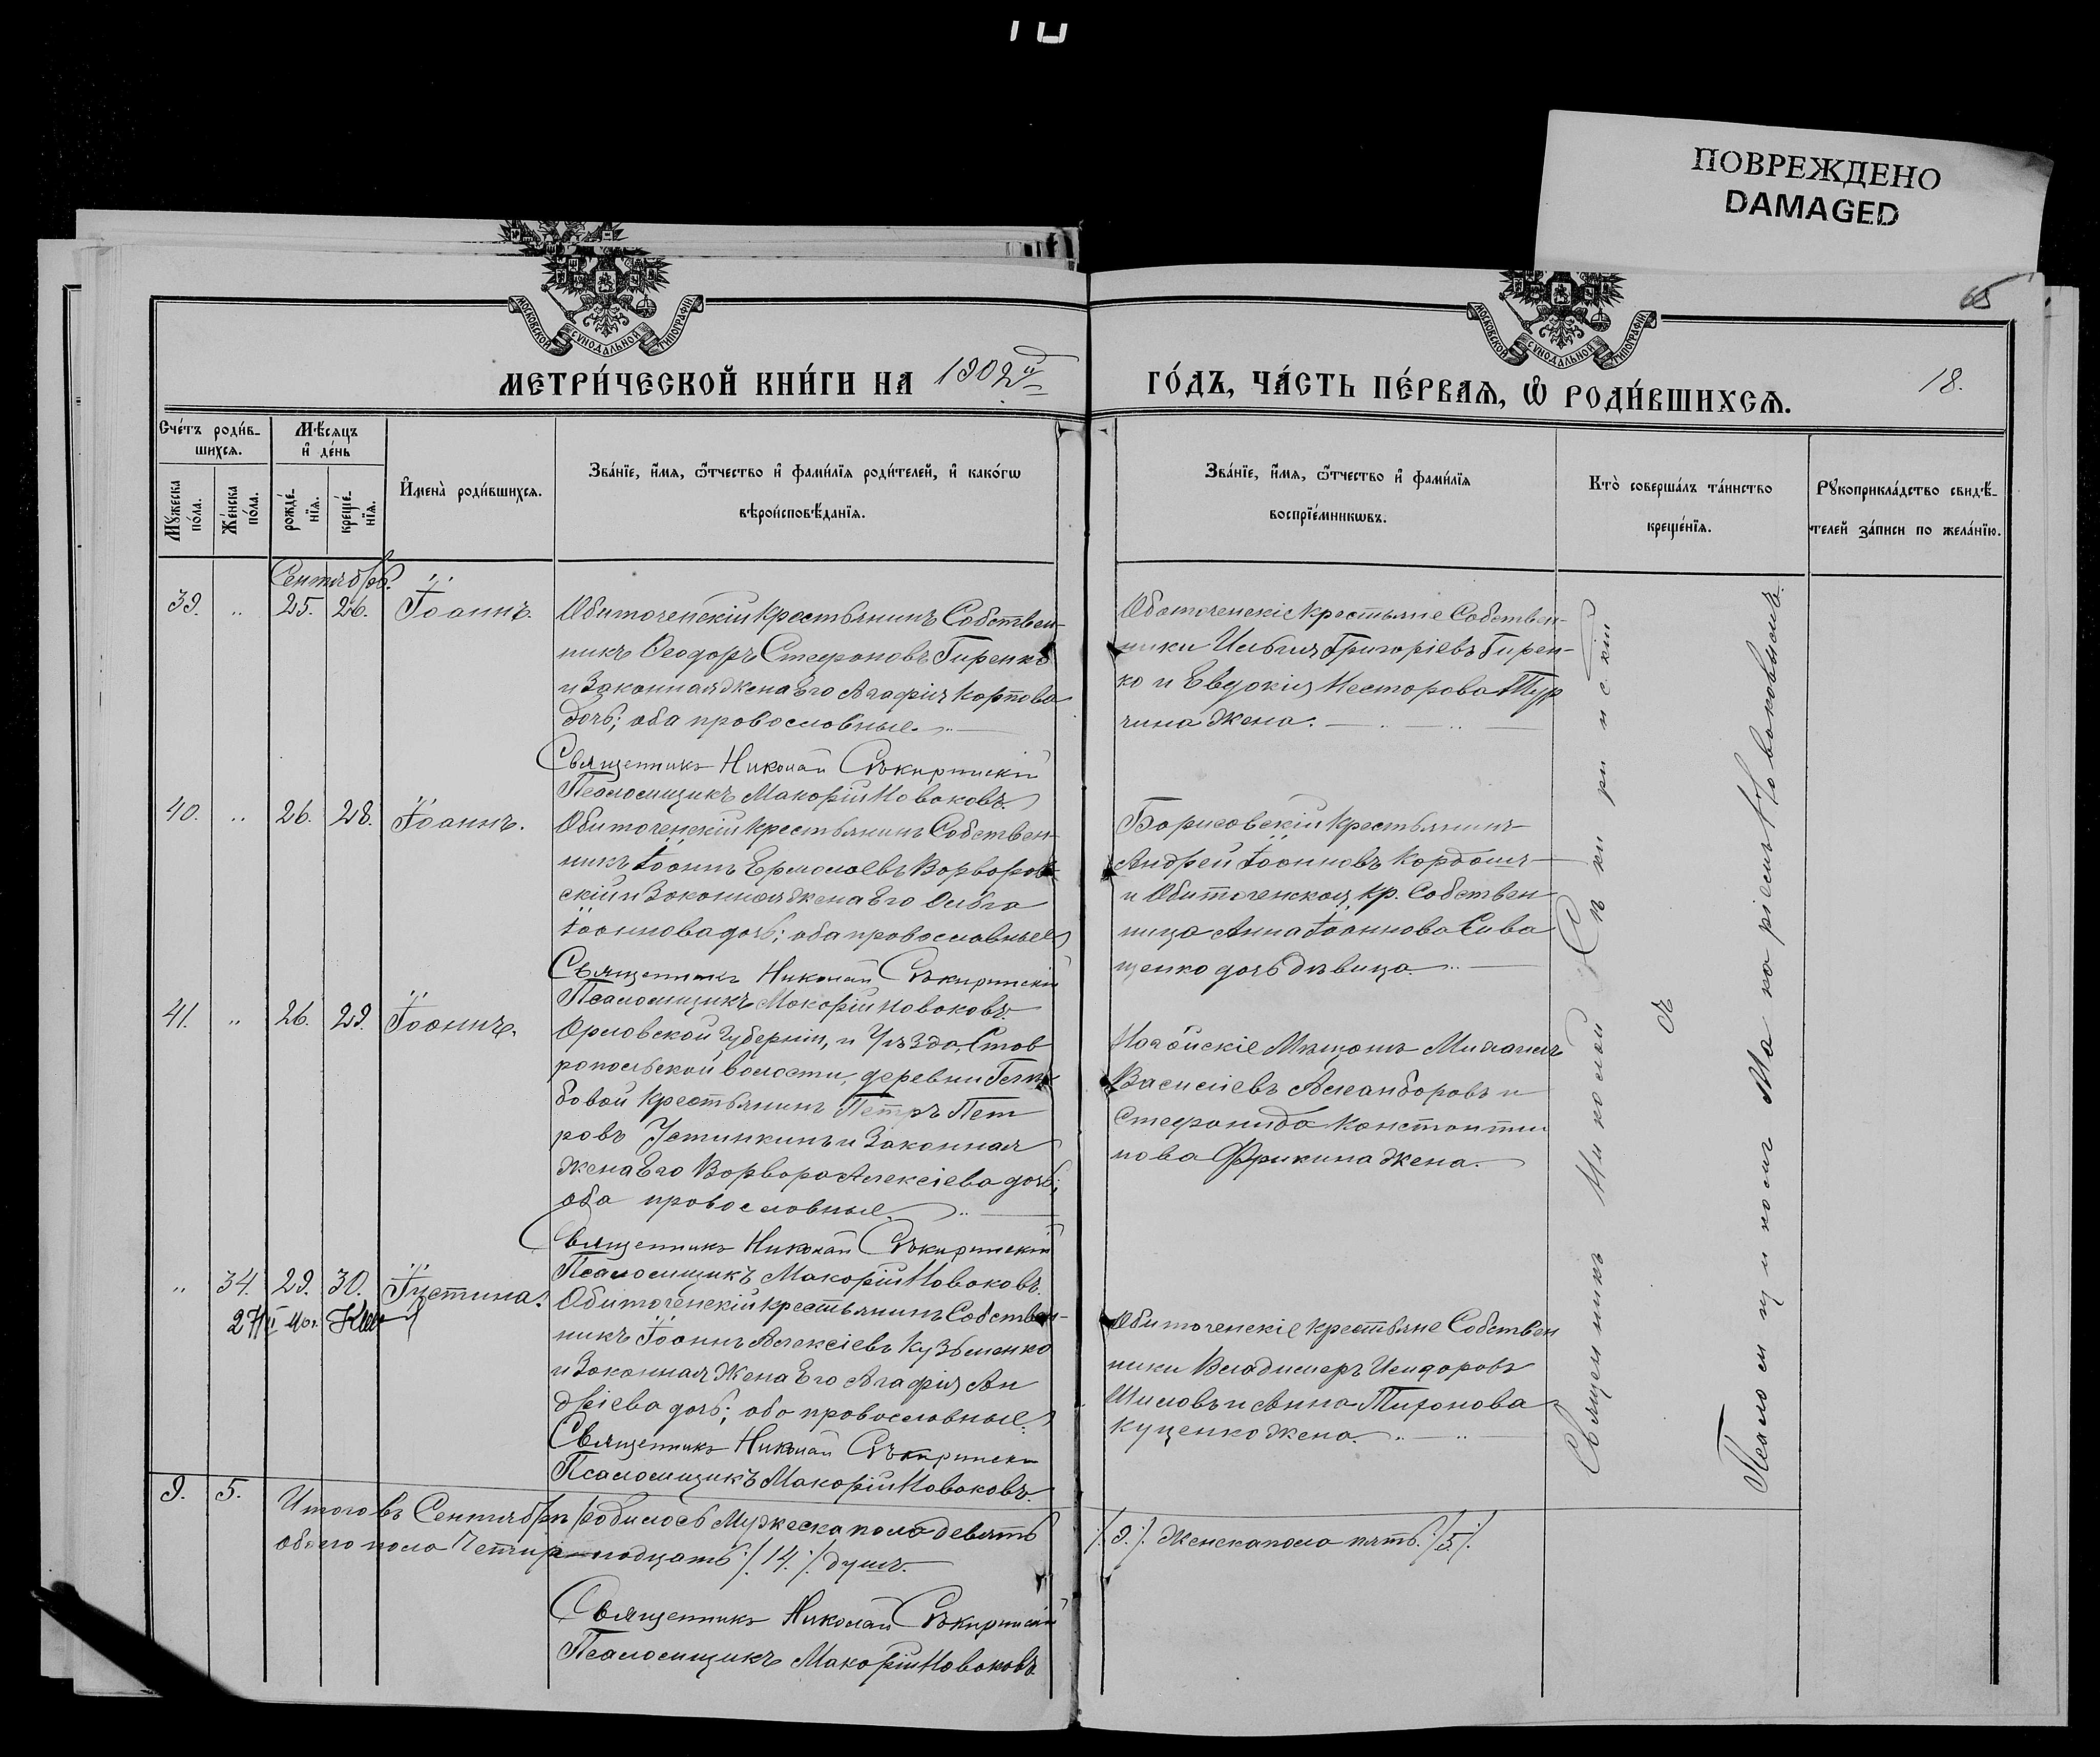 ПОВРЕЖДЕНО
DAMAGED
65
МОСКОВСКОЙ СѴНОДАЛЬНОЙ ТИПОГРАФІИ
МОСКОВСКОЙ СѴНОДАЛЬНОЙ ТИПОГРАФІИ
МЕТРИ́ЧЕСКОЙ КНИ́ГИ НА 1902й
ГО́ДЪ, ЧА́СТЬ ПЕ́РВАЯ, Ѡ҆ РОДИ́ВШИХСЯ.
18.
Сче́тъ роди́в-
шихся.
Мѣ́сяцъ
и҆ де́нь
Мꙋ́жеска по́ла.
Же́нска по́ла.
рожде́-
нїя.
креще́-
нїя.
И҆мена̀ роди́вшихся.
Зва́нїе, и҆́мя, ѻ҆́тчество и҆ фами́лїя роди́телей, и҆ како́гѡ
вѣроисповѣ́данїя.
Зва́нїе, и҆́мя, ѻ҆́тчество и҆ фами́лїя
воспрїе́мникѡвъ.
Кто̀ соверша́лъ та́инство
креще́нїя.
Рꙋкоприкла́дство свидѣ́-
телей за́писи по жела́нїю.
Сентябрь.
39. „ 25. 26. Іоаннъ.
Обиточенскій крестьянинъ Собствен-
никъ Ѳеодоръ Стефановъ Гиренко
и Законная жена Его Агафія Карпова
дочь; оба православные.
Священникъ Николай Сѣкиринскій
Псаломщикъ Макарій Новаковъ.
Обиточенскіе крестьяне Собствен-
ники Илья Григоріевъ Гирен-
ко и Евдокія Несторова Тур
чина жена.
40. „ 26. 28. Іоаннъ.
Обиточенскій крестьянинъ Собствен-
никъ Іоаннъ Ермолаевъ Варваров-
скій и Законная жена Его Ольга
Іоаннова дочь; оба православные
Священникъ Николай Сѣкиринскій
Псаломщикъ Макарій Новаковъ.
Борисовскій крестьянинъ
Андрей Іоанновъ Кордашъ
и Обиточенская кр. Собствен
ница Анна Іоаннова Сива
щенко дочь дѣвица.
41. „ 26. 29. Іоаннъ.
Орловской Губерніи, и Уѣзда, Став
ропольской волости, деревни
бовой крестьянинъ Петръ Пет
ровъ Устинкинъ и Законная
жена Его Варвара Алексіева дочь;
оба православные
Священникъ Николай Сѣкиринскій
Псаломщикъ Макарій Новаковъ.
Ногайскіе Мѣщане Михаилъ
Василіевъ Александровъ и
Стефанида Константи
нова Фрикина жена.
„ 34. 29. 30. Іустина.
Обиточенскій крестьянинъ Собствен-
никъ Іоаннъ Алексіевъ Кузьменко
и Законная Жена Его Агафія Ан
дріева дочь; оба православные
Священникъ Николай Сѣкирински
Псаломщикъ Макарій Новаковъ.
Обиточенскіе крестьяне Собствен
ники Владимеръ Исидоровъ
Шиловъ и Анна Тихонова
Куценко жена.
Священникъ Николай Сѣкиринскій
съ
Псаломщикомъ Макаріемъ Новаковымъ.
9. 5. Итого въ Сентябрѣ родилось Мужеска пола девять
/.9./. Женска пола пять. /.5./.
обоего пола Четырнадцать /.14./. душъ.
Священникъ Николай Сѣкиринскій
Псаломщикъ Макарій Новаковъ